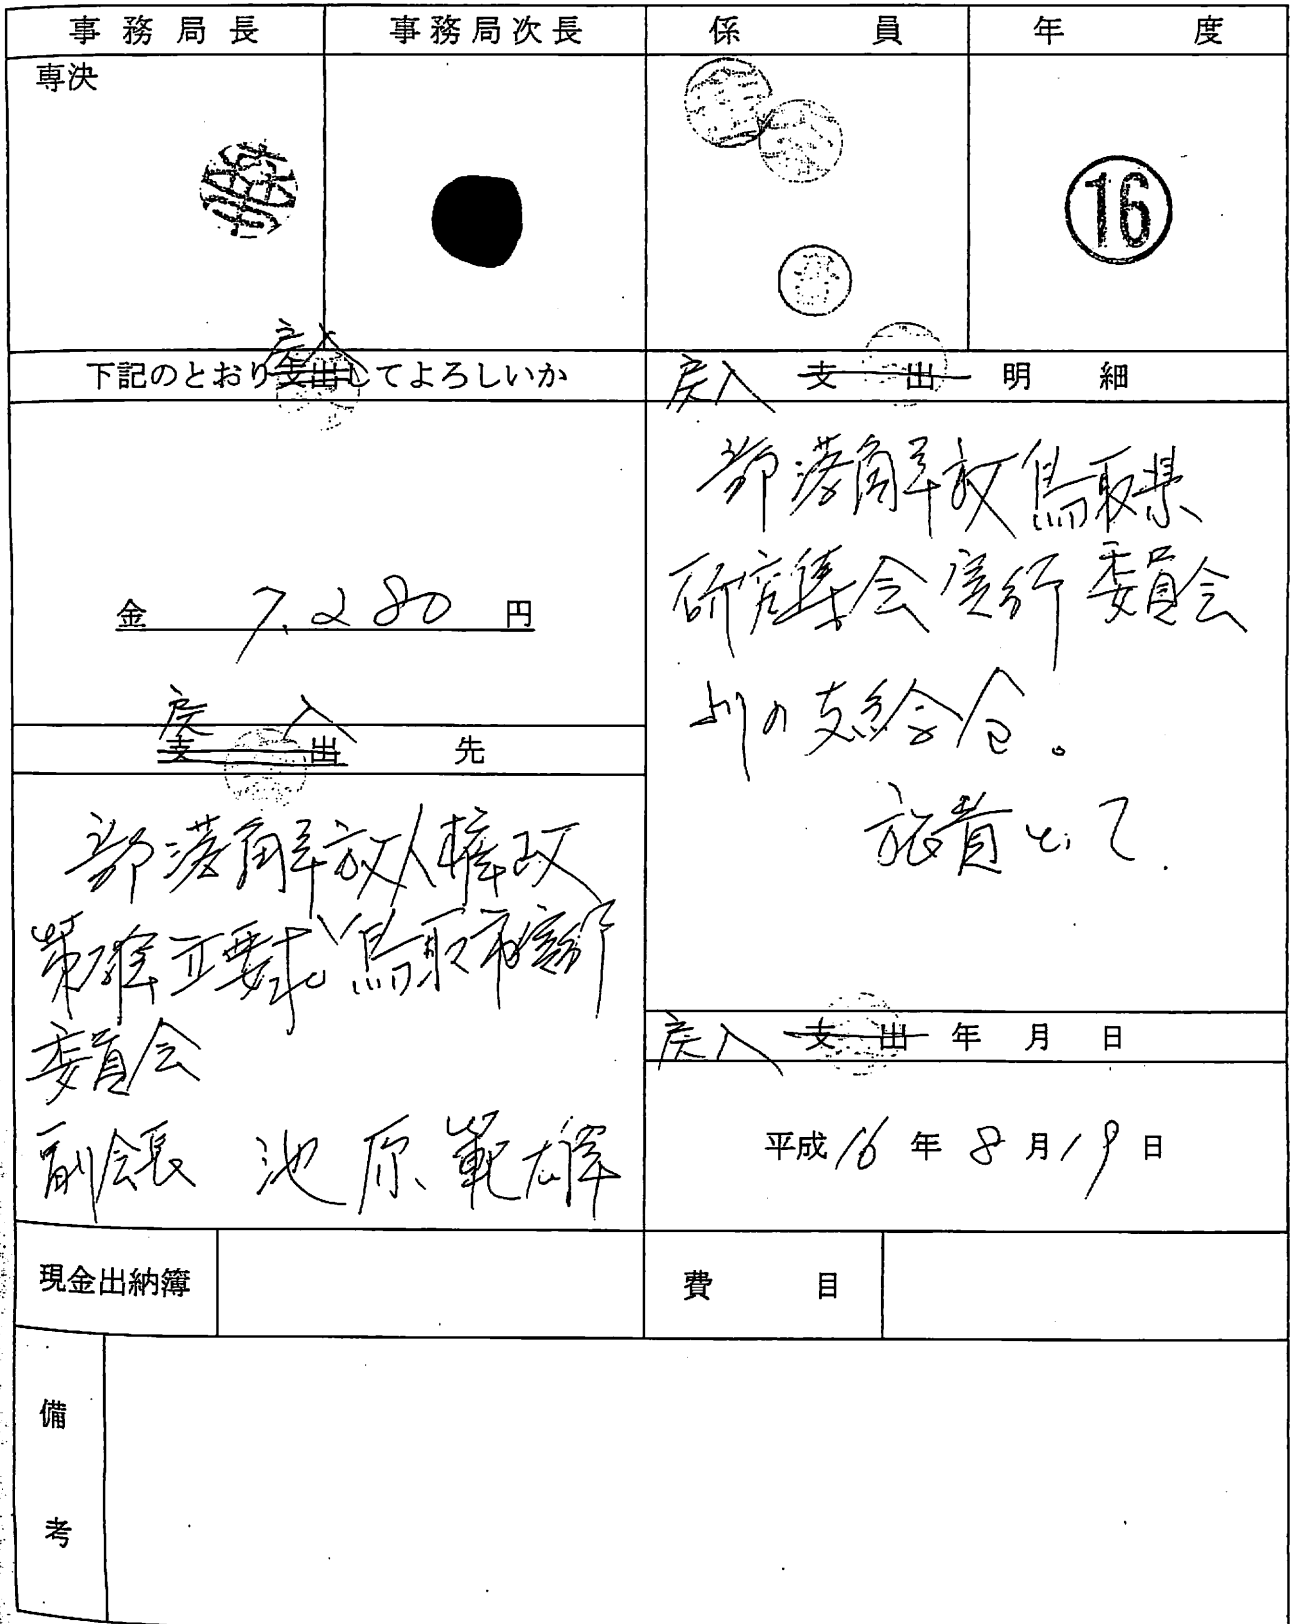 事務局長 事務局次長 係員 年度
専決
16
戻入
下記のとおり支出してよろしいか
金 7,280 円
戻入
支出先
部落解放人権政
策確立要求鳥取市実行
委員会
副会長 池原範雄
戻入 支出明細
部落解放鳥取県
研究集会実行委員会
よりの支給金。
旅費として
戻入 支出年月日
平成16年8月19日
現金出納簿 費目
備考